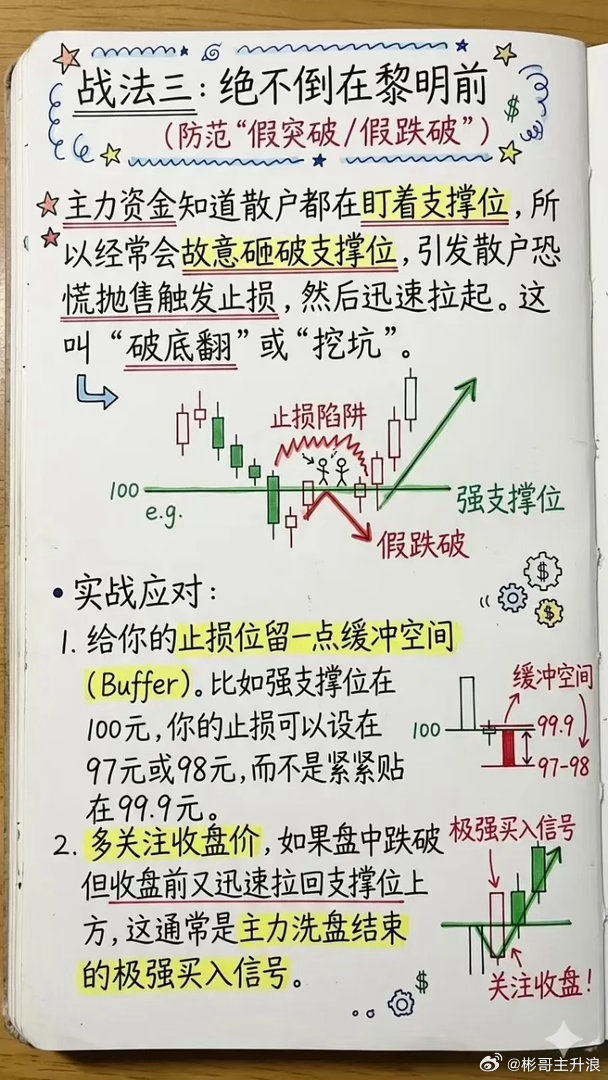 战法三：绝不倒在黎明前
（防范“假突破/假跌破”）
主力资金知道散户都在盯着支撑位，所
以经常会故意砸破支撑位，引发散户恐
慌抛售触发止损，然后迅速拉起。这
叫“破底翻”或“挖坑”。
止损陷阱
100
e.g.
强支撑位
假跌破
• 实战应对：
1. 给你的止损位留一点缓冲空间
（Buffer）。比如强支撑位在
100元，你的止损可以设在
97元或98元，而不是紧紧贴
在99.9元。
缓冲空间
100
99.9
97-98
2. 多关注收盘价，如果盘中跌破
但收盘前又迅速拉回支撑位上
方，这通常是主力洗盘结束
的极强买入信号。
极强买入信号
关注收盘！
$
$
$
$
@彬哥主升浪